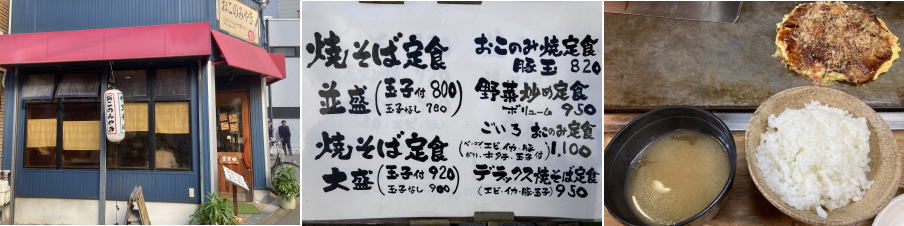 おこのみやき
おこのみやき
焼そば定食
並盛(玉子付 800)
玉子なし 780
焼そば定食
大盛(玉子付 920)
玉子なし 900
おこのみ焼定食
豚玉 820
野菜炒め定食
ボリューム 950
ごいろ おこのみ定食
エビ・イカ・豚
ホタテ・玉子付
1,100
デラックス焼そば定食
(エビ・イカ・豚・玉子) 950